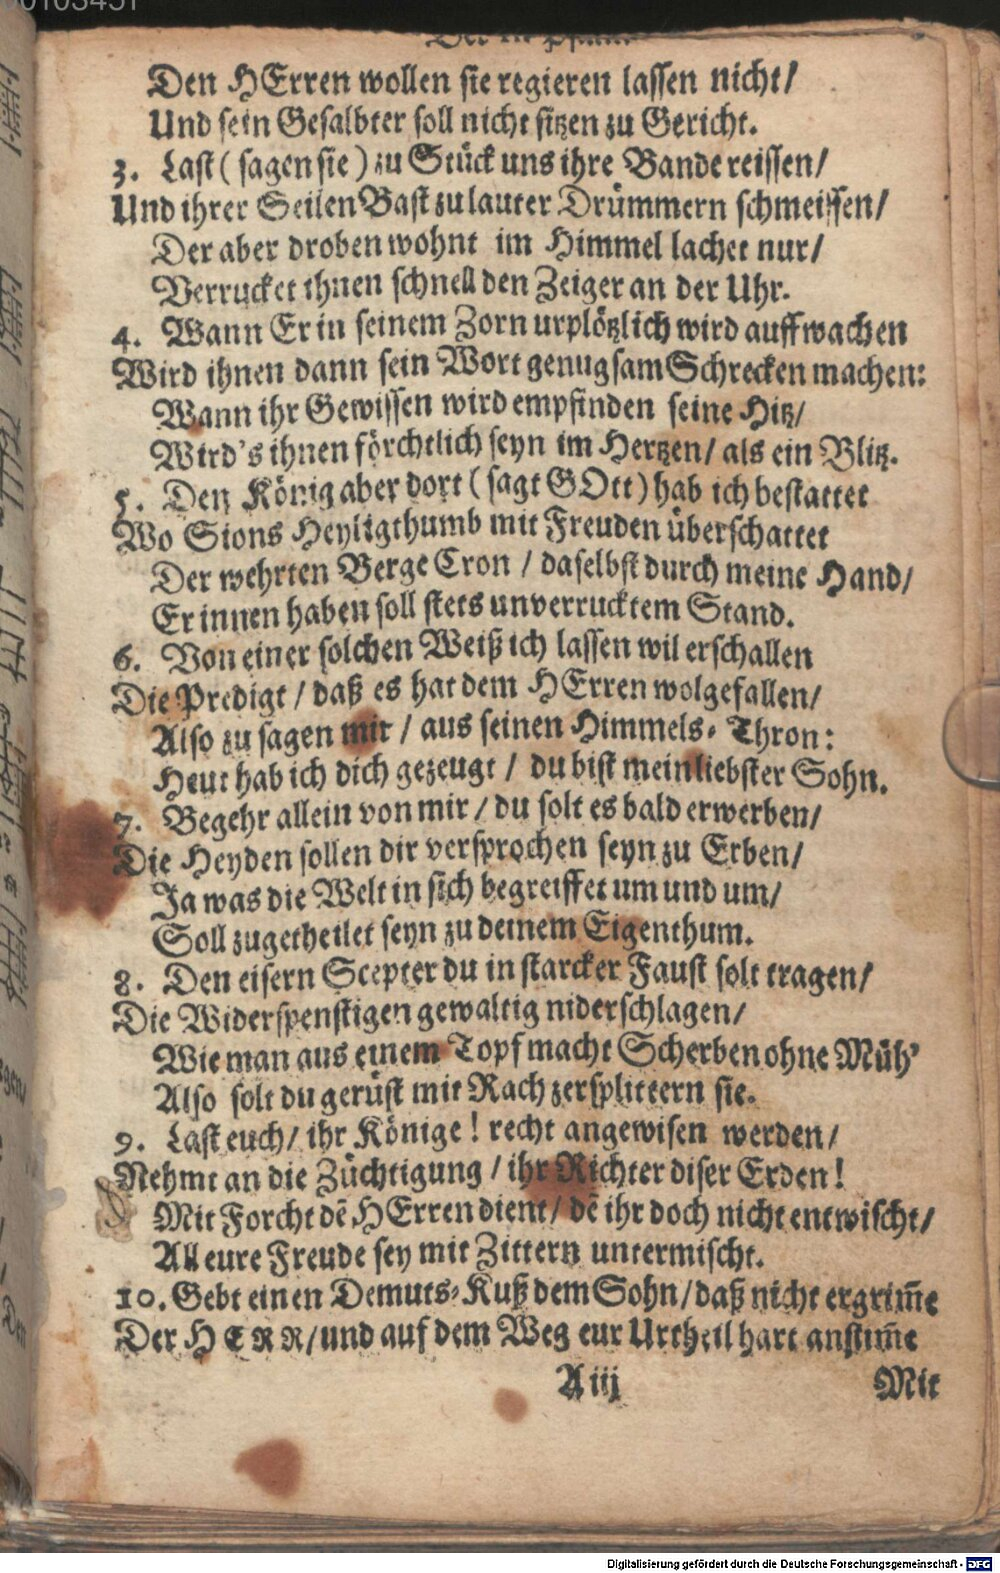 Den HErren wollen sie regieren lassen nicht/
Und sein Gesalbter soll nicht sitzen zu Gericht.
3. Last (sagen sie) zu Stück uns ihre Bande reissen/
Und ihrer Seilen Bast zu lauter Drümmern schmeissen/
Der aber droben wohnt im Himmel lachet nur/
Verrucket ihnen schnell den Zeiger an der Uhr.
4. Wann Er in seinem Zorn urplötzlich wird auffwachen
Wird ihnen dann sein Wort genugsam Schrecken machen:
Wann ihr Gewissen wird empfinden seine Hitz/
Wird's ihnen förchtlich seyn im Hertzen/ als ein Blitz.
5. Den König aber dort (sagt GOtt) hab ich bestattet
Wo Sions Heyligthumb mit Freuden überschattet
Der wehrten Berge Cron / daselbst durch meine Hand/
Er innen haben soll stets unverrucktem Stand.
6. Von einer solchen Weiß ich lassen wil erschallen
Die Predigt / daß es hat dem HErren wolgefallen/
Also zu sagen mir / aus seinen Himmels-Thron:
Heut hab ich dich gezeugt / du bist mein liebster Sohn.
7. Begehr allein von mir / du solt es bald erwerben/
Die Heyden sollen dir versprochen seyn zu Erben/
Ja was die Welt in sich begreiffet um und um/
Soll zugetheilet seyn zu deinem Eigenthum.
8. Den eisern Scepter du in starcker Faust solt tragen/
Die Widerspenstigen gewaltig niderschlagen/
Wie man aus einem Topf macht Scherben ohne Müh'
Also solt du gerüst mit Rach zersplittern sie.
9. Last euch/ ihr Könige! recht angewisen werden/
Nehmt an die Züchtigung / ihr Richter diser Erden!
Mit Forcht dē HErren dient/ dē ihr doch nicht entwischt/
All eure Freude sey mit Zittern untermischt.
10. Gebt einen Demuts-Kuß dem Sohn/ daß nicht ergrim̄e
Der HERR/ und auf dem Weg eur Urtheil hart anstim̄e
A iij Mit
Digitalisierung gefördert durch die Deutsche Forschungsgemeinschaft - DFG